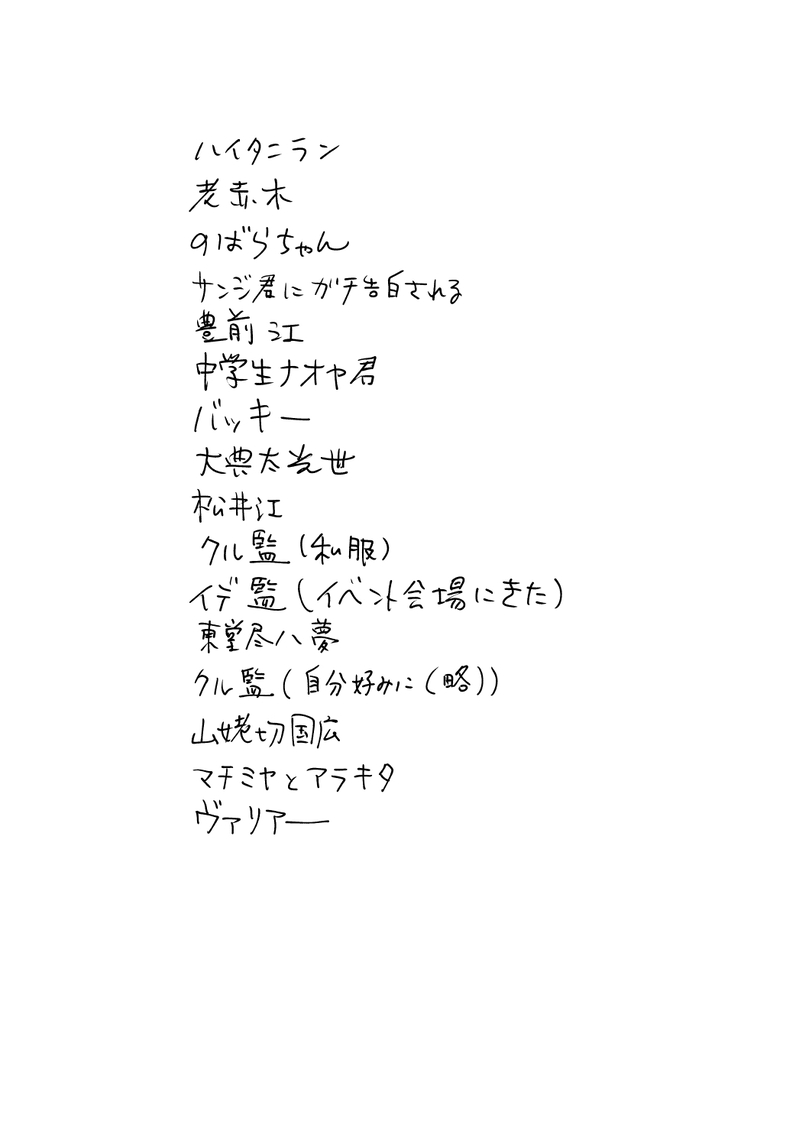 ハイタニラン
老赤木
のばらちゃん
サンジ君にガチ告白される
豊前江
中学生ナオヤ君
バッキー
大典太光世
松井江
クル監(私服)
イデ監(イベント会場にきた)
東堂尽八夢
クル監(自分好みに(略))
山姥切国広
マチミヤとアラキタ
ヴァリアー